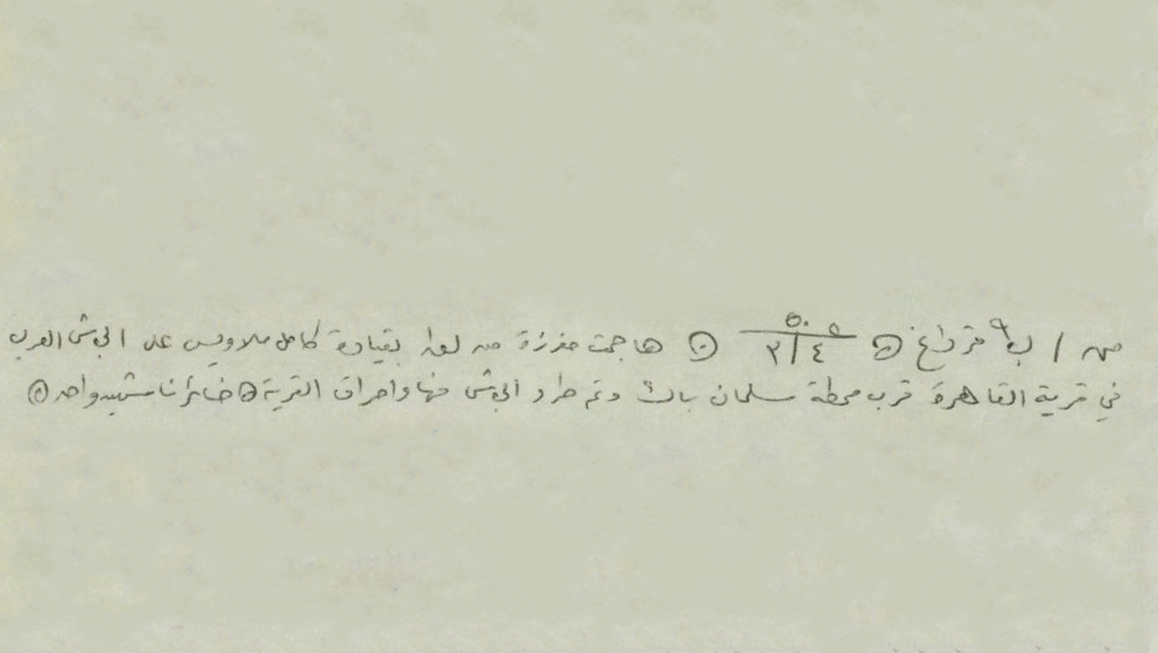 من / ب٩ قرداغ ⊙ ٥٠٥ ٣/٤ ⊙ هاجمت مفرزة من لوائنا بقيادة كامل ملاويس على الجحش العرب
في قرية القاهرة قرب محطة سلمان باك وتم طرد الجحش منها واحراق القرية ⊙ خسائرنا شهيد واحد ⊙